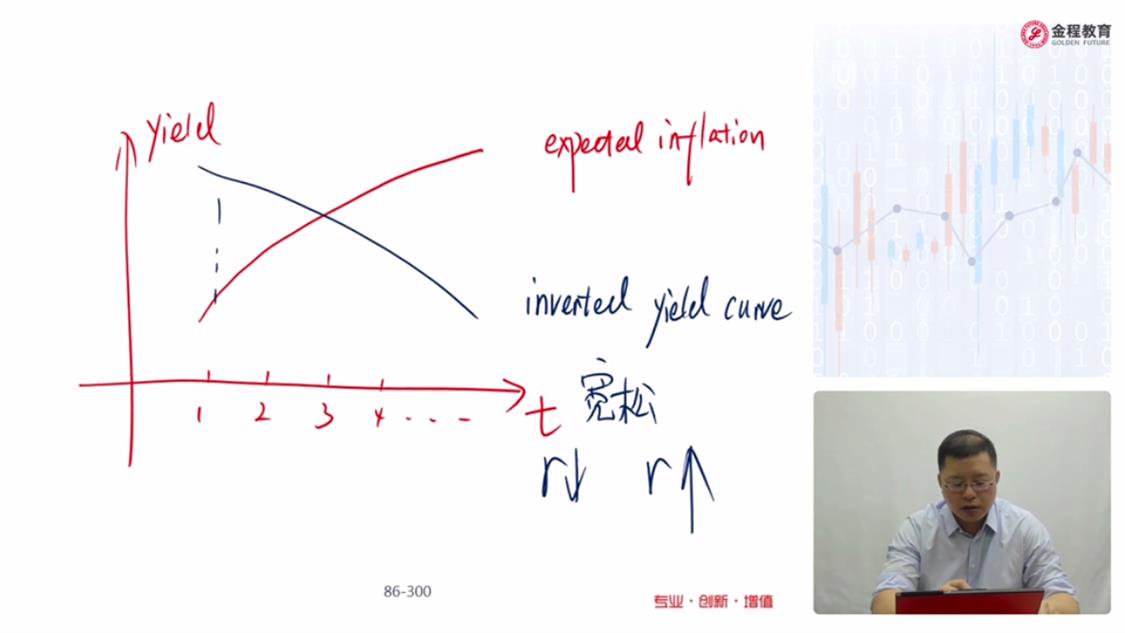 金程教育
GOLDEN FUTURE
yield
expected inflation
inverted yield curve
宽松
1 2 3 4 . . . -
t
r↓ r↑
86-300
专业·创新·增值